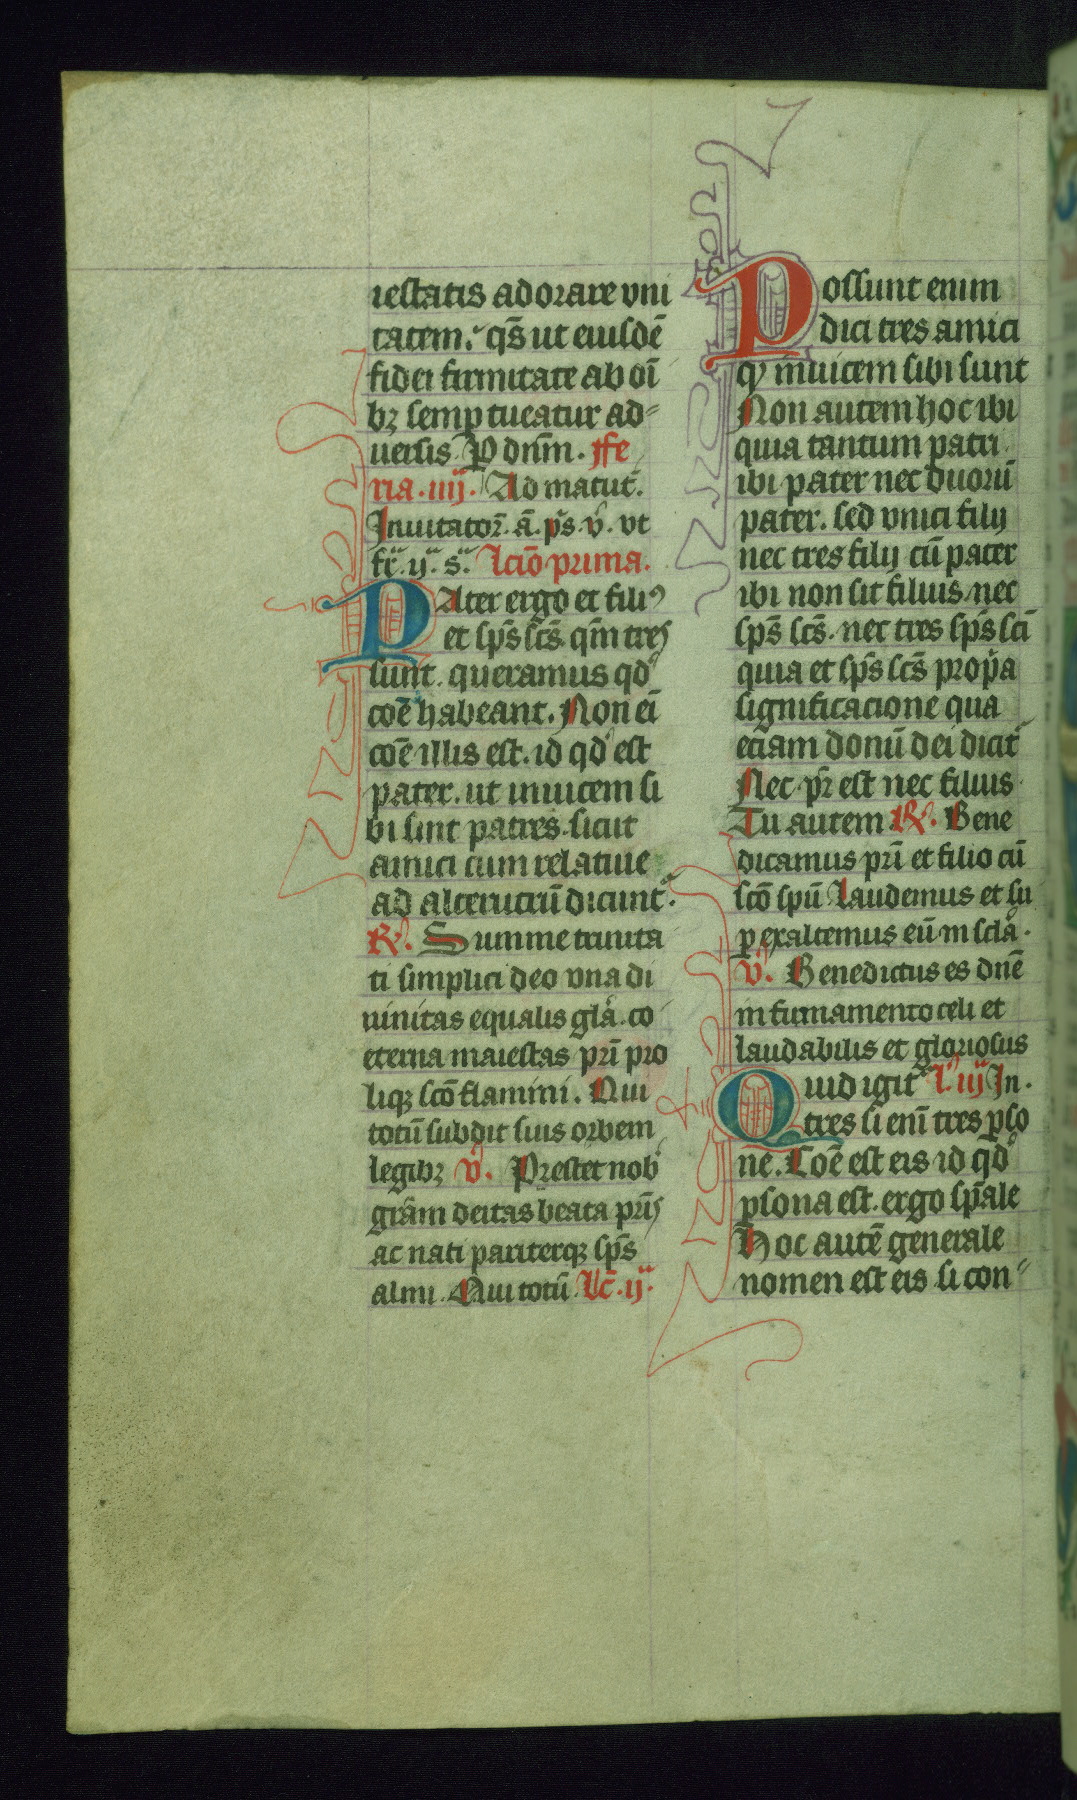 iestatis adorare vni
tatem. qs̄ ut eiusdē
fidei firmitate ab oı̄
bꝫ semp tueatur ad-
uersis. P dnm̄. ffe
ria. iiij. Ad matut̄.
Inuitator̄. ā. p̄s. v̄. vt
fr̄. ij. s. Lcio prima.
PAter ergo et filiꝰ
et sp̄s sc̄s qm̄ tres
sunt. queramus qd
coē habeant. Non eı̄
coē illis est. id qd est
pater. ut inuicem si
bi sint patres. sicut
amici cum relatiue
ad alterutrū dicunt̄.
R̷. Summe trinita
ti simplici deo vna di
uinitas equalis glā. co
eterna maiestas prı̄ pro
liqꝫ scō flamini. Qui
totū subdit suis orbem
legibꝫ v̄. Prestet nob
grām deitas beata prı̄s
ac nati pariterqꝫ sp̄s
almi. Qui totū. Lc̄. ij.
Possunt enim
dici tres amici
qꝫ inuicem sibi sunt
Non autem hoc ibi
quia tantum patri
ibi pater nec duorū
pater. sed vnici filij
nec tres filij cū pater
ibi non sit filius nec
sp̄s sc̄s. nec tres sp̄s scı̄
quia et sp̄s sc̄s prop̄a
significacione qua
etiam donū dei dicit̄
Nec pr̄ est nec filius.
Tu autem R̷. Bene
dicamus prı̄ et filio cū
scō spū Laudemus et su
ꝑ exaltemus eū in sclā.
v̄. Benedictus es dnē
in firmamento celi et
laudabilis et gloriosus
Quid igit̄ L. iij In.
tres si enı̄ tres ꝑso
ne. Coē est eis id qd
ꝑsona est. ergo sp̄ale
Hoc autē generale
nomen est eis si con-